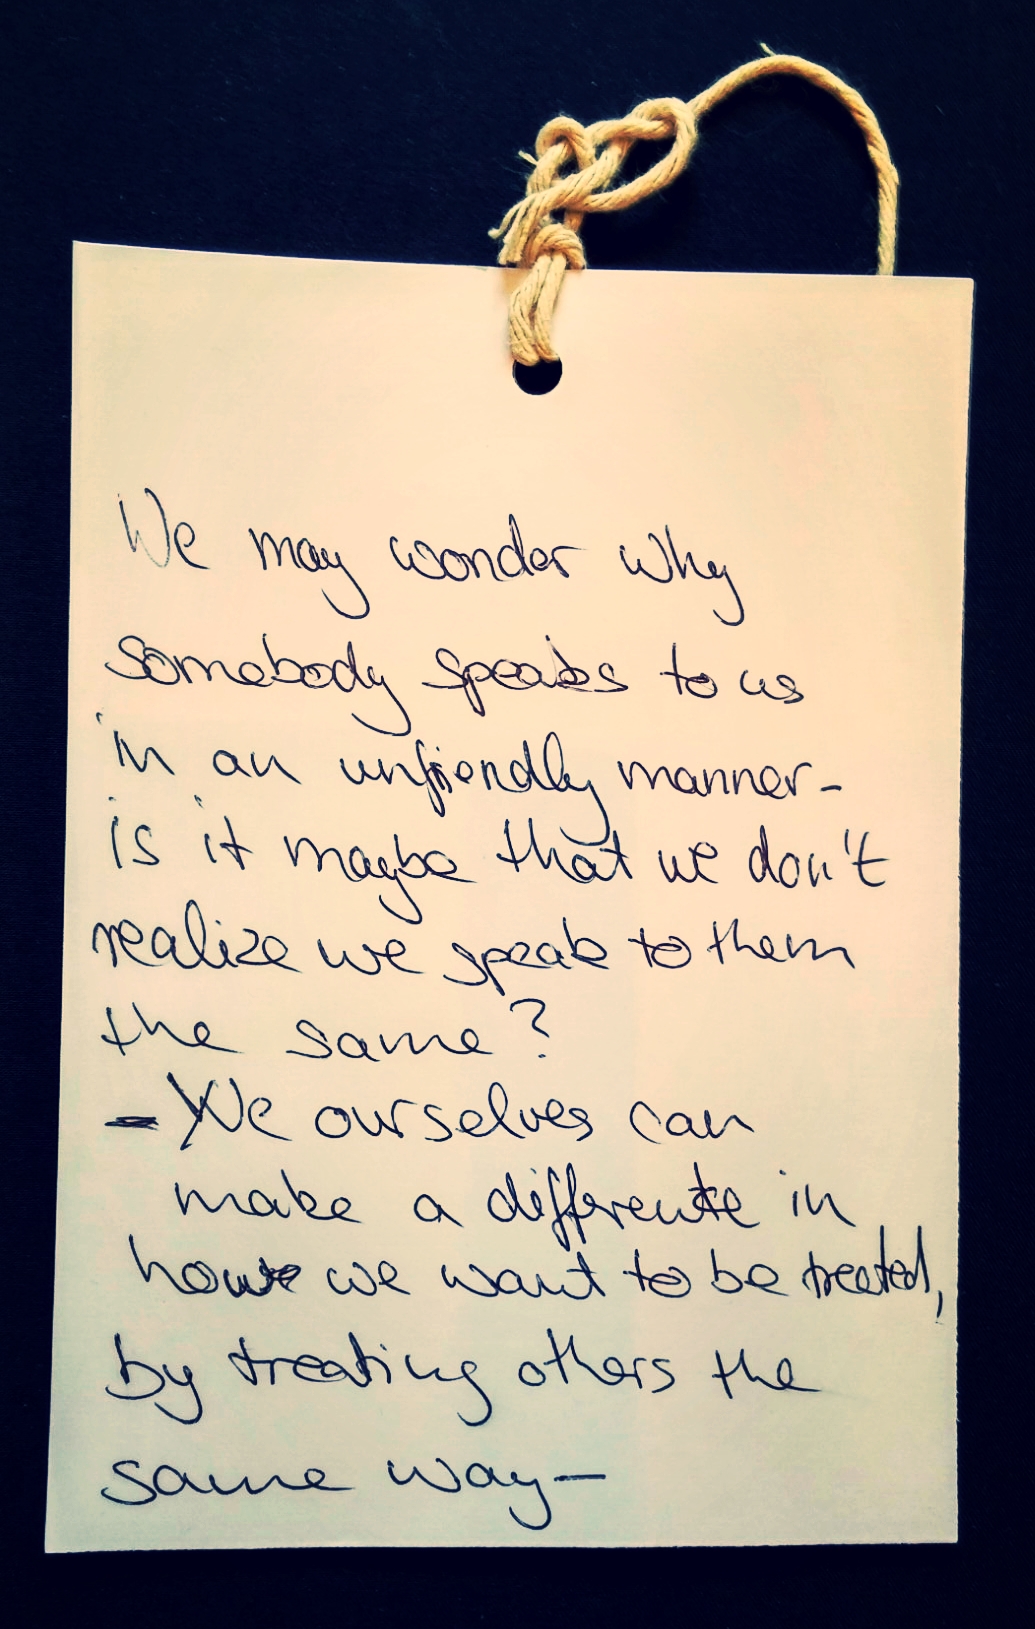 We may wonder why
somebody speaks to us
in an unfriendly manner-
is it maybe that we don't
realize we speak to them
the same?
- We ourselves can
make a difference in
how we want to be treated,
by treating others the
same way-